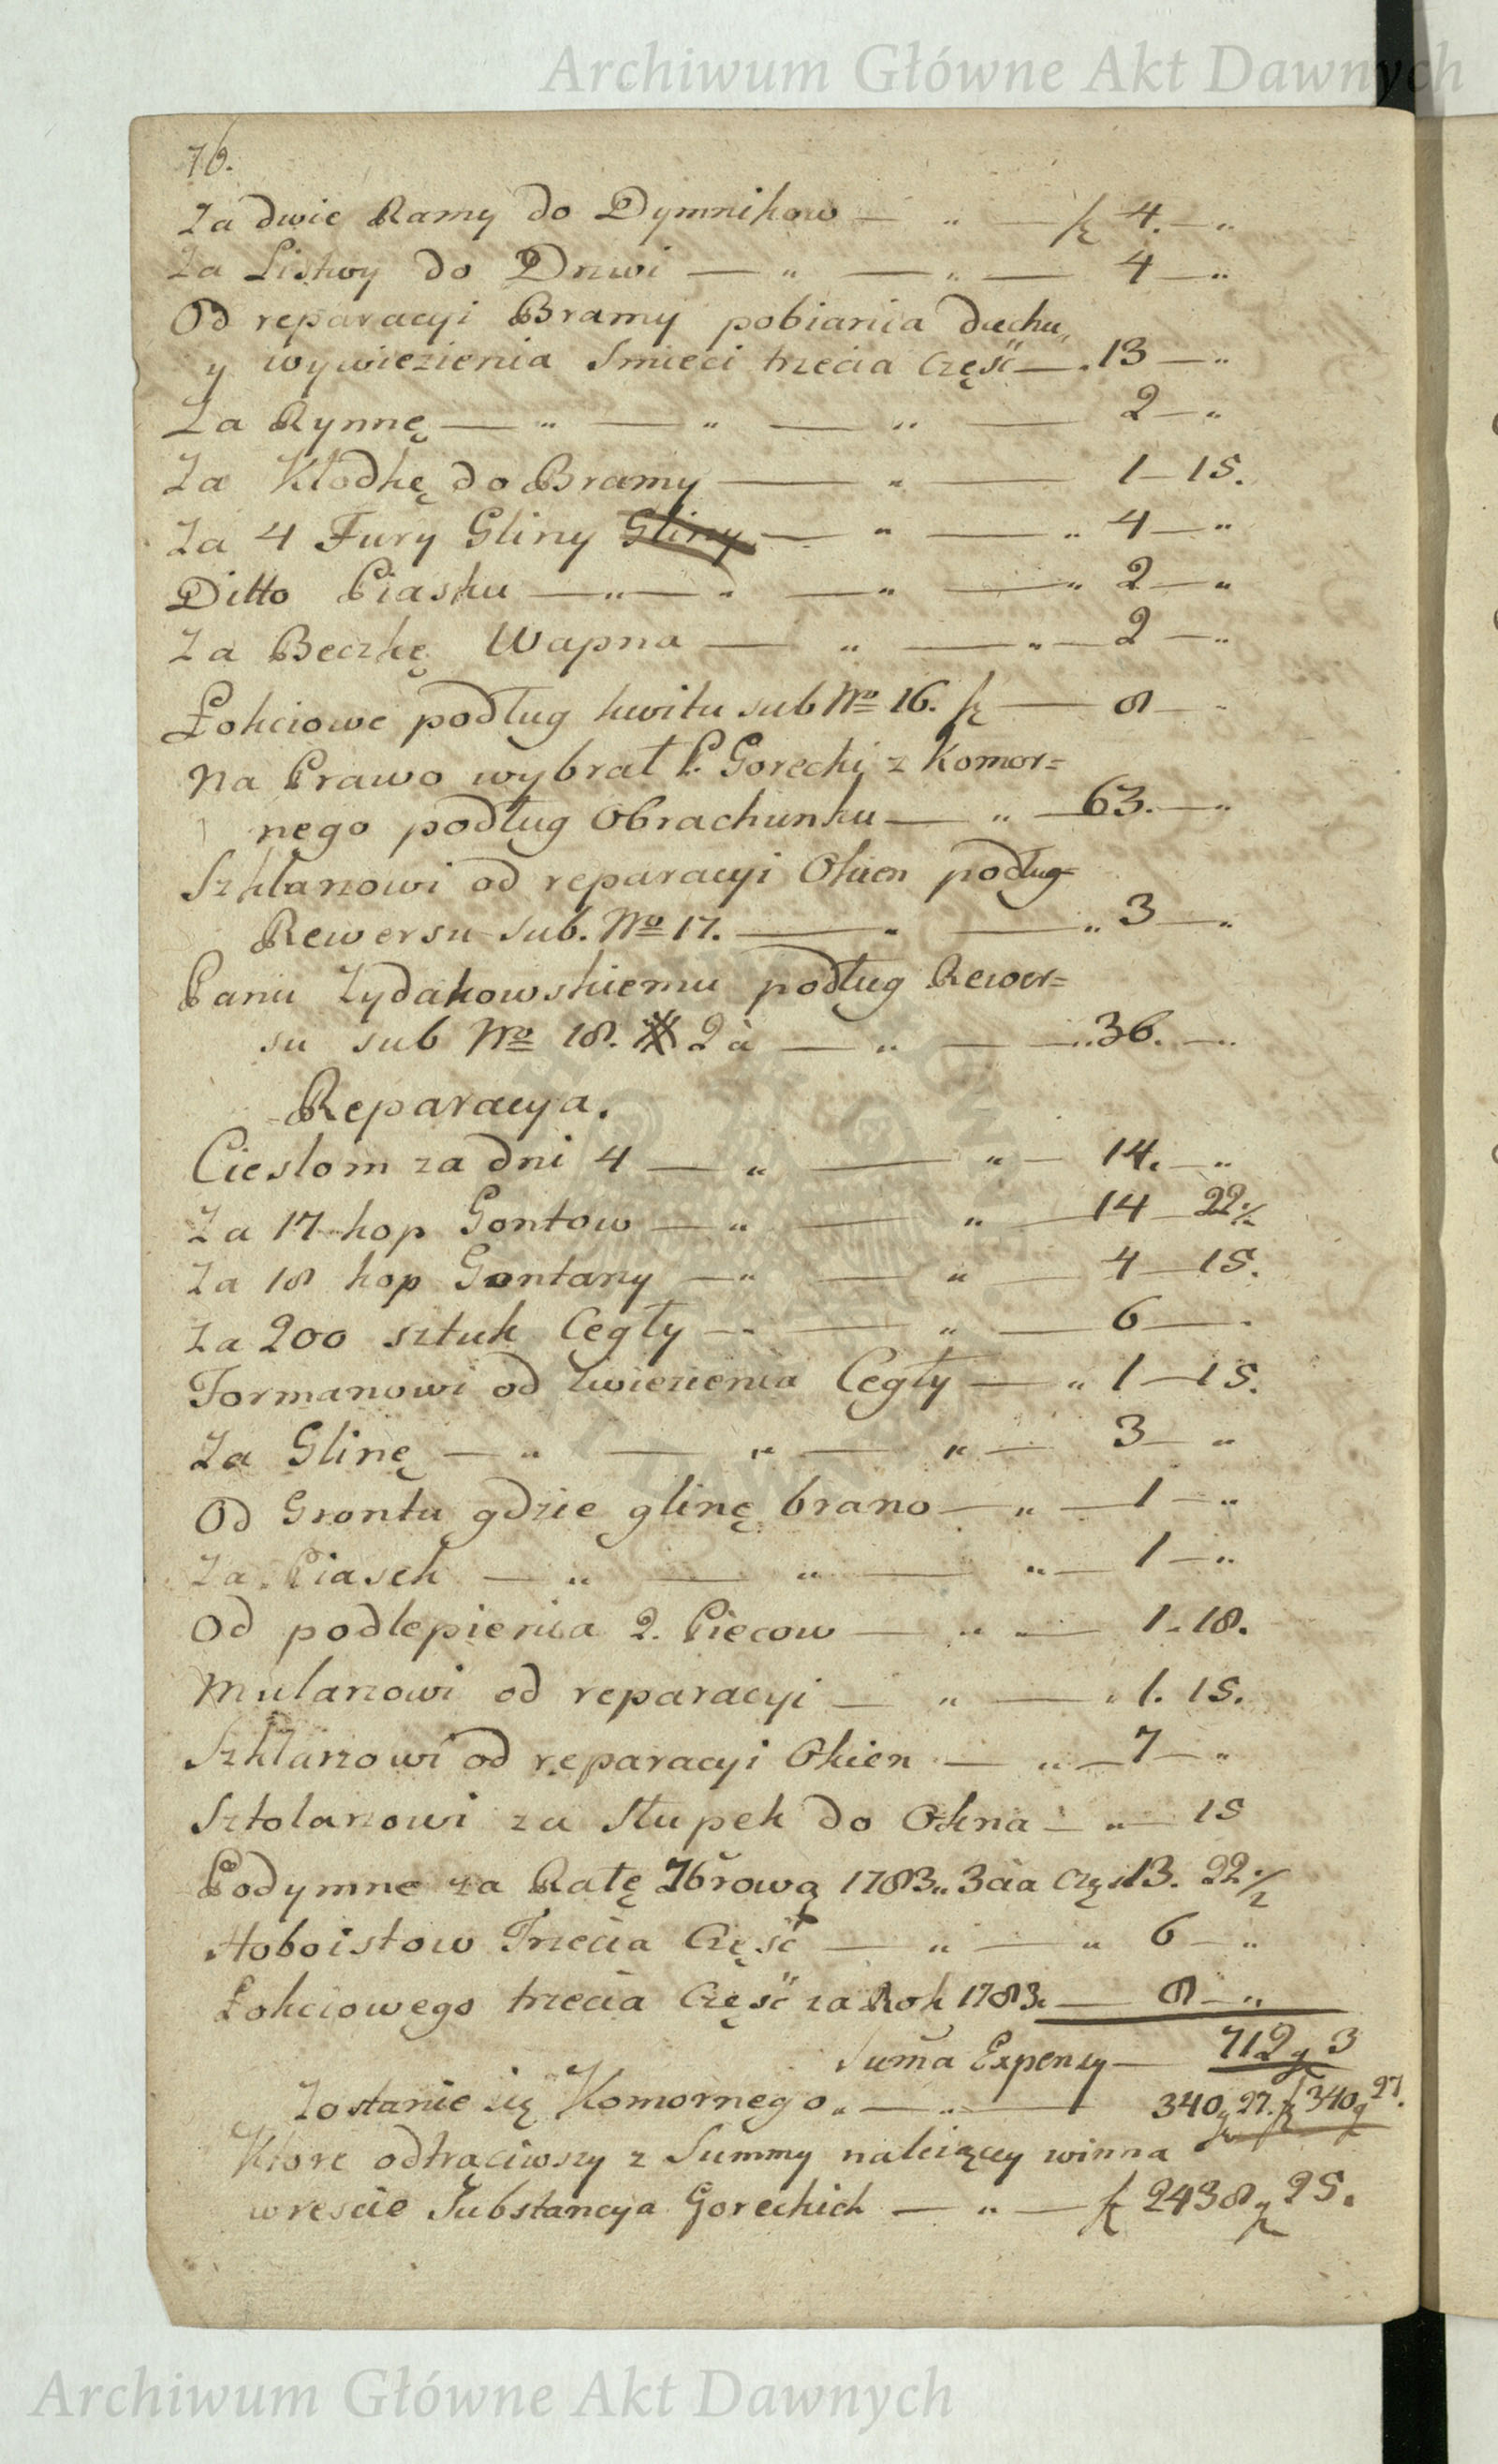 Archiwum Główne Akt Dawnych
76.
Za dwie Ramy do Dymnikow — " — fz 4. — "
Za Listwy do Drzwi — " — " — 4 — "
Od reparacyi Bramy pobiania dachu,
y wywiezienia Smieci trzecia część — . 13 — "
Za Rynnę — " — " — " — 2 — "
Za Kłodkę do Bramy — " — 1 — 15.
Za 4 Fury Gliny Gliny — " — " 4 — "
Ditto Piasku — " — " — " — " 2 — "
Za Beczkę Wapna — " — " — 2 — "
Łokciowe podług kwitu sub No 16. fz — 8 — "
Na Prawo wybrał P. Gorecki z Komor=
nego podług Obrachunku — " — 63. — "
Szklarzowi od reparacyi Okien podług
Rewersu sub. No 17. — " — " 3 — "
Panu Zydakowskiemu podług Rewer=
su sub No 18. 2 à — " — " 36. — "
Reparacya.
Cieslom za dni 4 — " — " — 14. — "
Za 17 kop Gontow — " — " — 14 — 22 1/2
Za 18 kop Gontany — " — " — 4 — 15.
Za 200 sztuk Cegły — " — " — 6 — "
Formanowi od zwiezienia Cegły — " 1 — 15.
Za Glinę — " — " — " — 3 — "
Od Grontu gdzie glinę brano — " — 1 — "
Za Piasek — " — " — " — 1 — "
Od podlepienia 2. Piecow — " — 1. 18.
Mularzowi od reparacyi — " — " 1. 15.
Szklarzowi od reparacyi Okien — " — 7 — "
Sztolarzowi za Słupek do Okna — " — 15
Podymne za Ratę 7brową 1783. 3cia Częś 13. 22 1/2
Hoboistow Trzecia Część — " — " 6 — "
Łokciowego trzecia Część za Rok 1783. — 8 — "
Suma Expensy — 712 g 3
Zostanie się Komornego. — " — 340 g 27. fz 340 g 27.
Ktore odtrąciwszy z Summy należący winna
wreście Substancya Goreckich — " — fz 2438 g 25.
Archiwum Główne Akt Dawnych